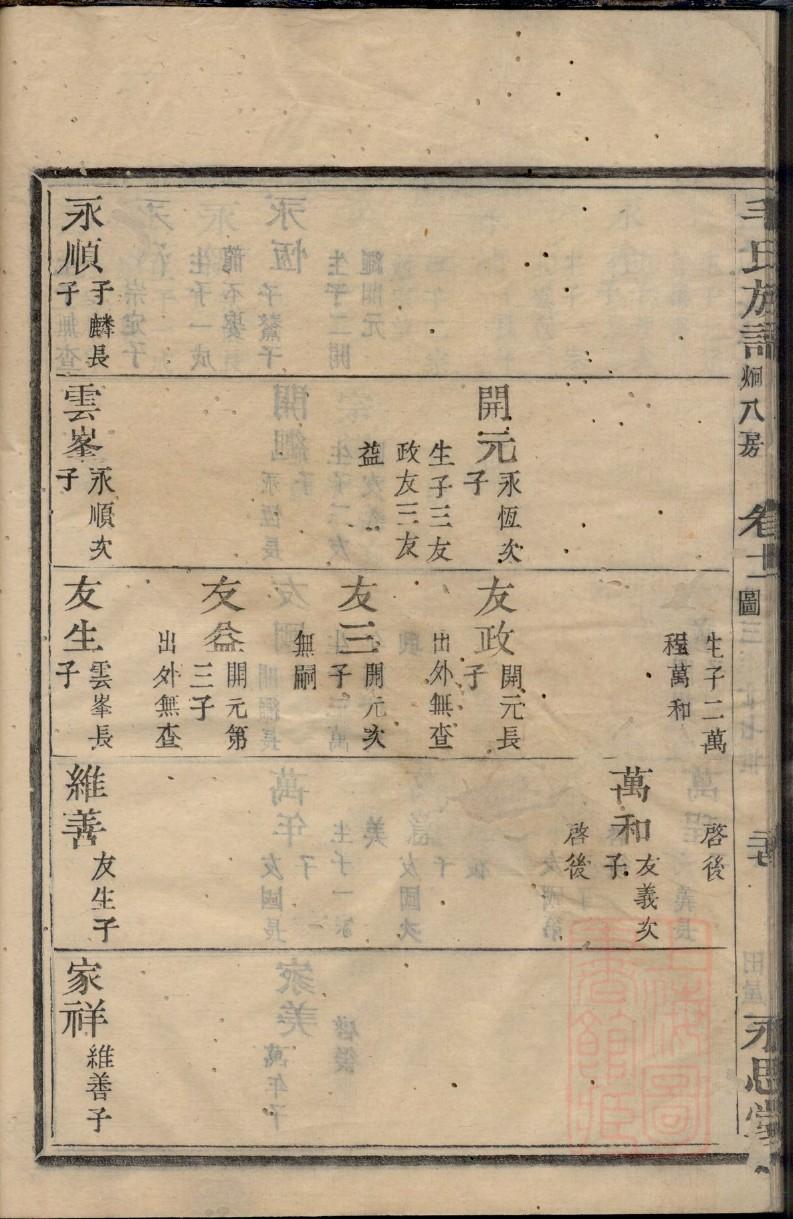 毛氏族譜 炯八房 卷十二 圖 永思堂
永順 子麟長
子
開元 永恆次
子
生子三友
政友三友
益
雲峯 永順次
子
生子二萬
程萬和
友政 開元長
子
出外無查
友三 開元次
子
無嗣
友益 開元第
三子
出外無查
友生 雲峯長
子
啓後
萬和 友義次
子
啓後
維善 友生子
家祥 維善子